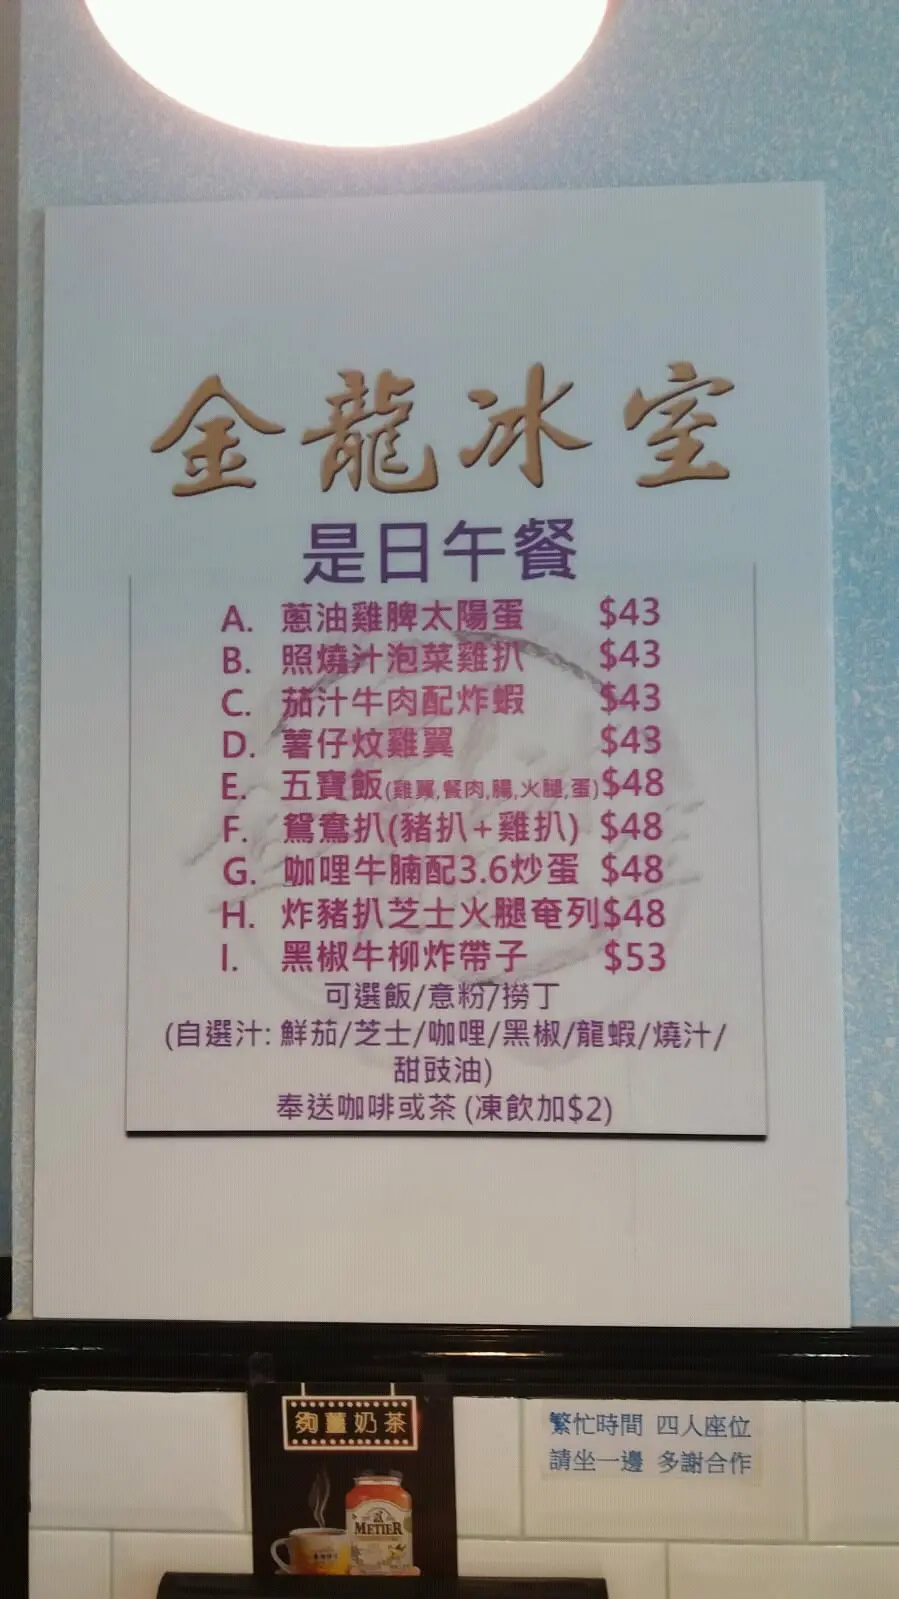 金龍冰室
是日午餐
A. 蔥油雞脾太陽蛋 $43
B. 照燒汁泡菜雞扒 $43
C. 茄汁牛肉配炸蝦 $43
D. 薯仔炆雞翼 $43
E. 五寶飯(雞翼,餐肉,腸,火腿,蛋) $48
F. 鴛鴦扒(豬扒+雞扒) $48
G. 咖哩牛腩配3.6炒蛋 $48
H. 炸豬扒芝士火腿奄列$48
I. 黑椒牛柳炸帶子 $53
可選飯/意粉/撈丁
(自選汁: 鮮茄/芝士/咖哩/黑椒/龍蝦/燒汁/
甜豉油)
奉送咖啡或茶 (凍飲加$2)
夠薑奶茶
METIER
繁忙時間 四人座位
請坐一邊 多謝合作